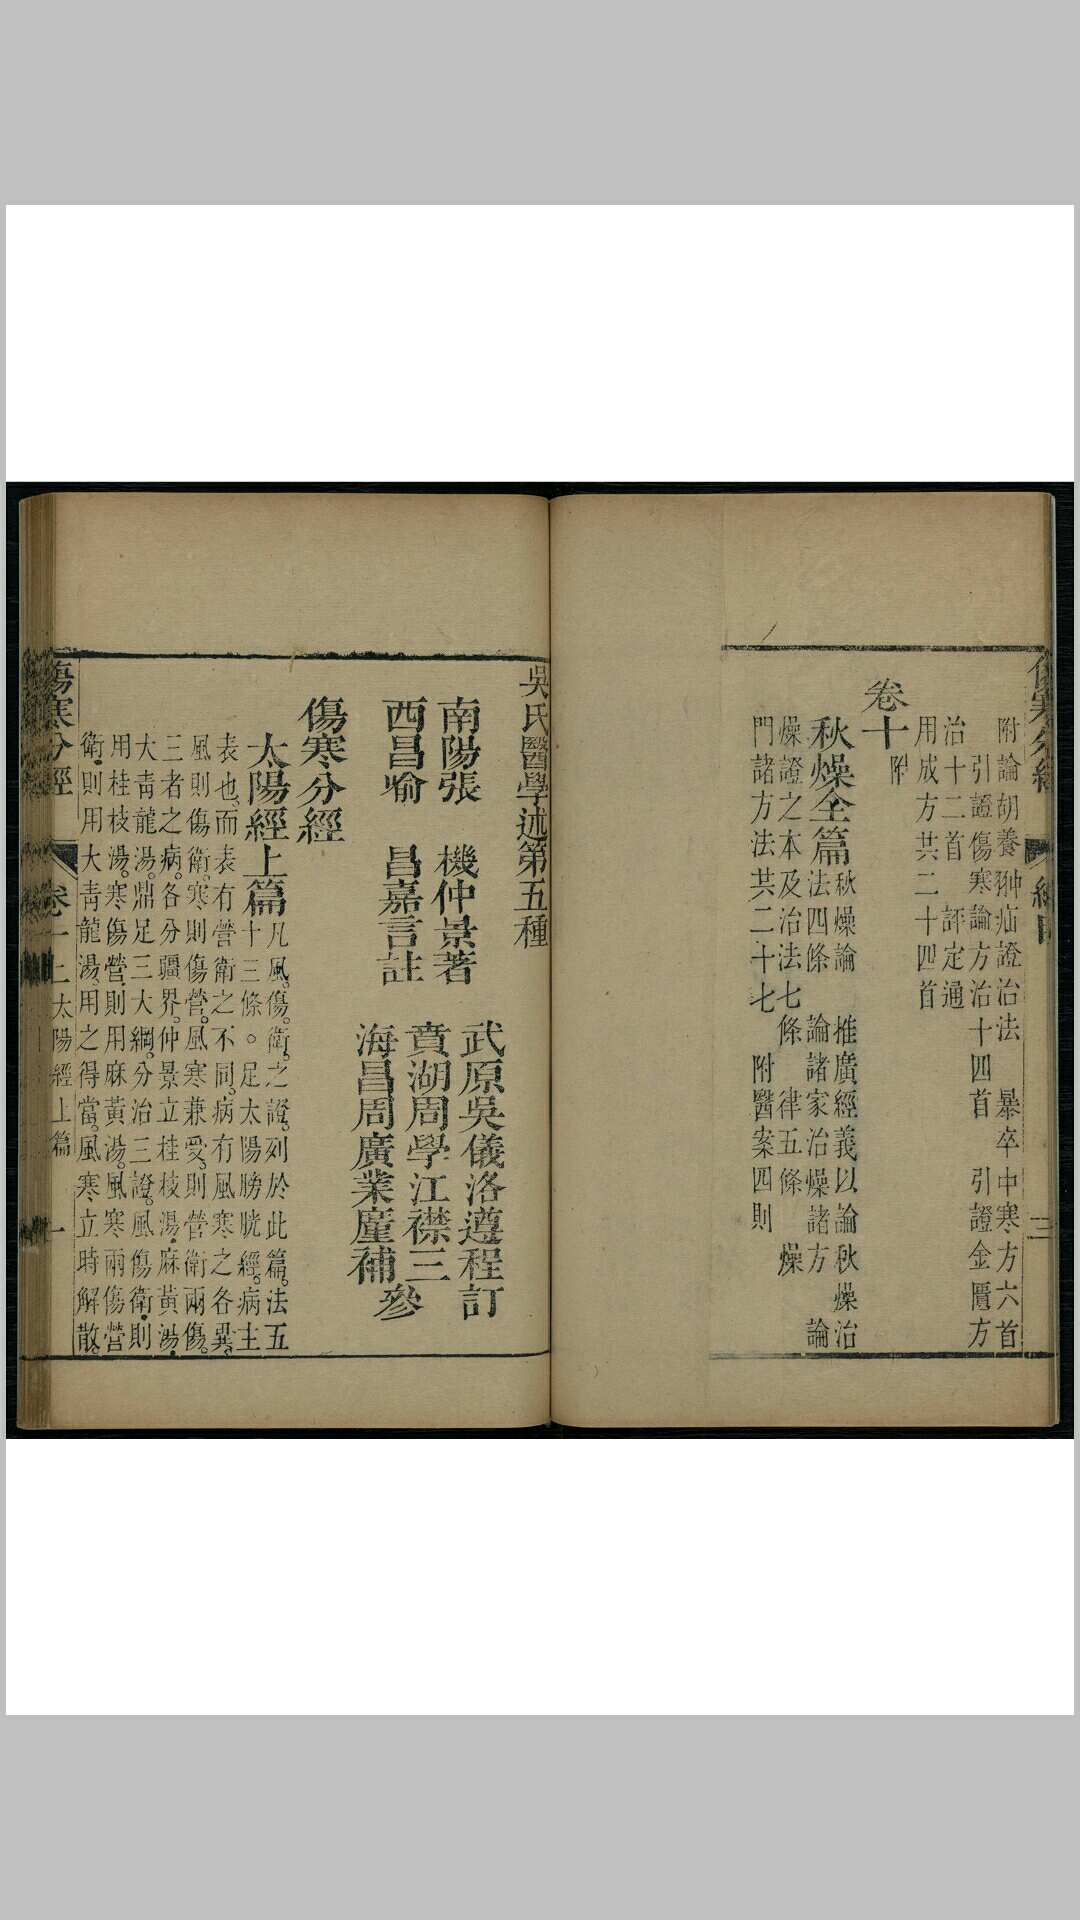 附論胡養翀疝證治法　暴卒中寒方六首
引證傷寒論方治十四首　引證金匱方
治十二首　評定通
用成方共二十四首
卷十附
秋燥全篇
秋燥論　推廣經義以論秋燥治
法四條　論諸家治燥諸方　論
燥證之本及治法七條　律五條　燥
門諸方法共二十七　附醫案四則
吳氏醫學述第五種
南陽張　機仲景著
西昌喻　昌嘉言註
武原吳儀洛遵程訂
賁湖周學江襟三
海昌周廣業廑補
參
傷寒分經
太陽經上篇
凡風傷衛之證列於此篇法五
十三條。足太陽膀胱經病主
表也而表有營衛之不同病有風寒之各異
風則傷衛寒則傷營風寒兼受則營衛兩傷
三者之病各分疆界仲景立桂枝湯麻黃湯
大青龍湯鼎足三大綱分治三證風傷衛則
用桂枝湯寒傷營則用麻黃湯風寒兩傷營
衛則用大青龍湯用之得當風寒立時解散
傷寒分經
卷一上太陽經上篇
一